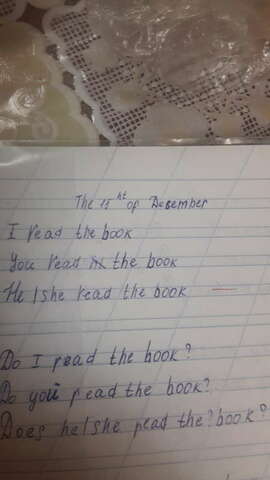 The 13 ht of December
I read the book
You read the book
He / she read the book
Do I read the book?
Do you read the book?
Does he / she read the? book?